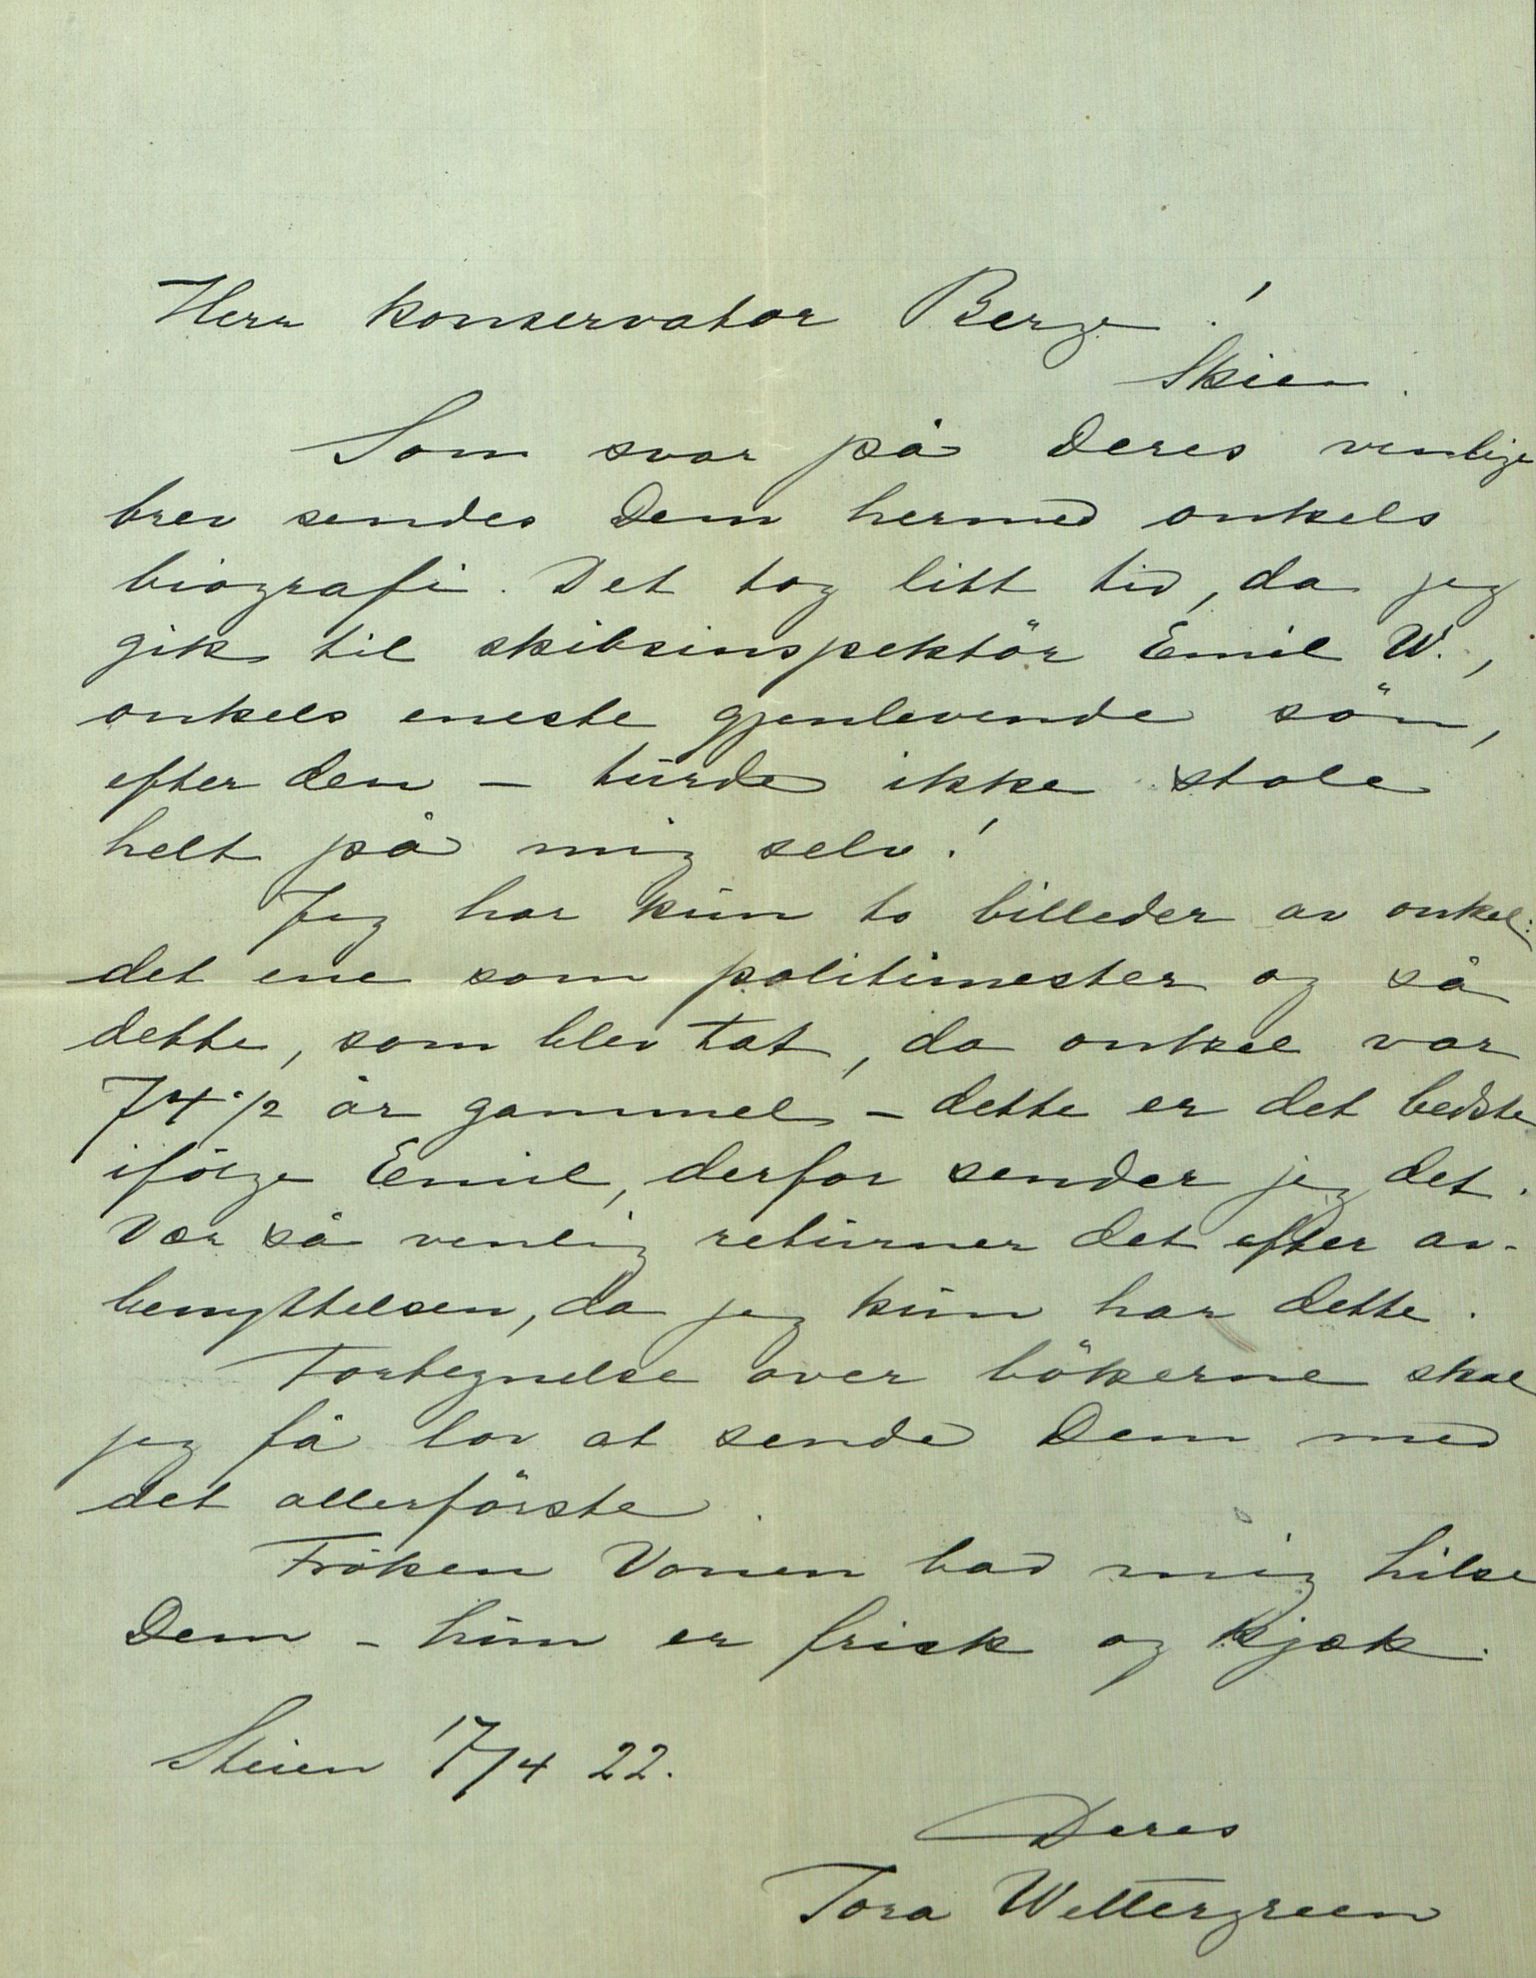 Herr konservator Berge!
Skien.
Som svar på Deres venlige
brev sendes Dem hermed onkels
biografi. Det tog litt tid, da jeg
gik til skibsinspektör Emil W.,
onkels eneste gjenlevende sön,
efter den – turde ikke stole
helt på mig selv!
Jeg har kun to billeder av onkel:
det ene som politimester og så
dette, som blev tat, da onkel var
74 1/2 år gammel – dette er det bedste
ifölge Emil, derfor sender jeg det.
Vær så venlig returner det efter av-
benyttelsen, da jeg kun har dette.
Fortegnelse over bökerne skal
jeg få lov at sende Dem med
det allerförste.
Fröken Vonen bad mig hilse
Dem – hun er frisk og kjæk.
Skien 17/4 22.
Deres
Tora Wettergreen